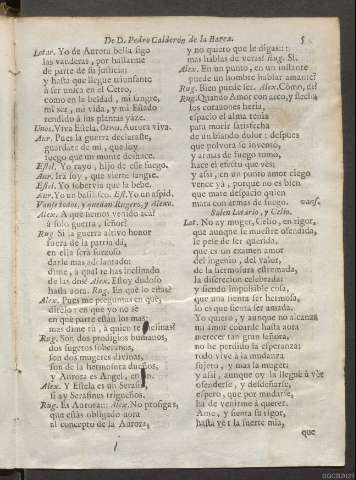 De D. Pedro Calderón de la Barca. 5
Lotar. Yo de Aurora bella sigo
las vanderas, por hallarme
de parte de su justicia;
y hasta que llegue triunfante
à ser unica en el Cetro,
como en la beldad, mi sangre,
mi ser, mi vida, y mi Estado
rendido à sus plantas yaze.
Unos. Viva Estela. Otros. Aurora viva.
Aur. Pues la guerra declaraste,
guardate de mi, que soy
fuego que un monte deshace.
Estel. Yo rayo, hijo de esse fuego.
Aur. Ira soy, que vierte sangre.
Estel. Yo sobervia que la bebe.
Aur. Yo un basilisco. Est. Yo un aspid.
Vanse todos, y quedan Rugero, y Alexo.
Alex. A que hemos venido acà?
à solo guerra, señor?
Rug. Si la guerra altivo honor
fuera de la patria dà,
en ella serà forzoso
darle mas adelantado:
dime, à qual te has inclinado
de las dos? Alex. Estoy dudoso
hasta aora. Rug. En què lo estàs?
Alex. Pues me preguntas en què,
direlo: en que yo no sè
en què parte estàn los mas;
mas dime tu, à quien te inclinas?
Rug. Son dos prodigios humanos,
dos sugetos soberanos,
son dos mugeres divinas,
son de la hermosura dueños,
y Aurora es Angel, en fin.
Alex. Y Estela es un Serafin,
si ay Serafines trigueños.
Rug. Es Aurora: Alex. No prosigas,
que estàs obligado aora
al concepto de la Aurora,
y no quiero que le digas:
mas hablas de veras? Rug. Si.
Alex. En un punto, en un instante
puede un hombre hablar amante?
Rug. Bien puede ser. Alex. Còmo, dì?
Rug. Quando Amor con arco, y flecha
los corazones heria,
espacio el alma tenia
para morir satisfecha
de un blando dolor: despues
que polvora se inventò,
y armas de fuego tomò,
hace el efecto que ves;
y assi, en un punto amor ciego
vence yà, porque no es bien
que mate despacio quien
mata con armas de fuego. vanse.
Salen Lotario, y Celio.
Lot. No ay muger, Celio, en rigor,
que aunque se muestre ofendida,
le pese de ser querida,
que es un examen amor
del ingenio, del valor,
de la hermosura estremada,
la discrecion celebrada:
y siendo impossible cosa,
que una sienta ser hermosa,
lo es que sienta ser amada.
Yo quiero, y aunque no alcanza
mi amor cobarde hasta aora
merecer tan gran señora,
no he perdido la esperanza:
todo vive à la mudanza
sujeto, y mas la muger;
y assi, aunque oy la llegue à vèr
ofenderse, y desdeñarse,
espero, que por mudarse,
ha de venirme à querer.
Ame, y sienta su rigor,
hasta vèr la suerte mia,
que